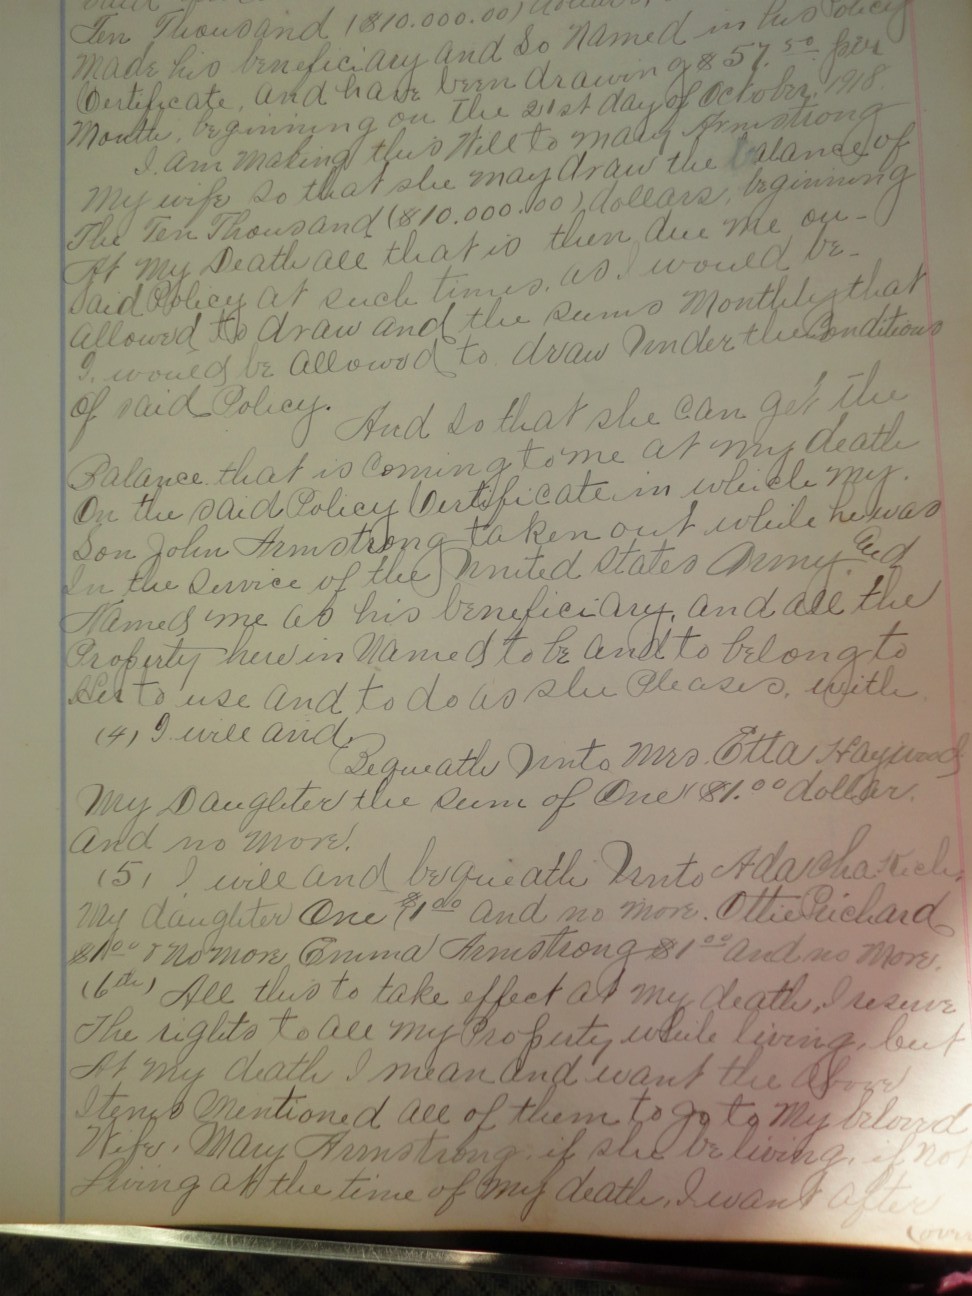 Ten Thousand ($10.000.00) dollars,
Made his beneficiary and So Named in his Policy
Certificate, and have been drawing $57.50 per
Month, beginning on the 21st day of October, 1918.
I am making this Will to Mary Armstrong
My wife so that she may draw the balance of
The Ten Thousand ($10.000.00) dollars, beginning
At My Death all that is then due me on-
Said Policy at such times, as I would be-
allowed to draw and the sums Monthly that
I, would be allowed to draw Under the Conditions
of said Policy.
And so that she can get the
Balance that is Coming to me at my death
On the said Policy Certificate in which My.
Son John Armstrong taken out while he was
In the service of the United States Army and
Named me as his beneficiary, and all the
Property herein Named to be and to belong to
Her to use and to do as she Pleases, with
(4) I will and
Bequeath Unto Mrs. Etta Haywood
My Daughter the sum of One $1.00 dollar.
And no More.
(5) I will and bequeath Unto Ada
My daughter One $1 00 and no more. Ottie Richard
$1 00 & No more Emma Armstrong $1 00 and no More.
(6th) All this to take effect at My death, I reserve
The rights to all my Property while living, but
At my death I mean and want the above
Items Mentioned all of them to go to My beloved
Wife, Mary Armstrong, if she be living, if not
Living at the time of My death, I want after
(over